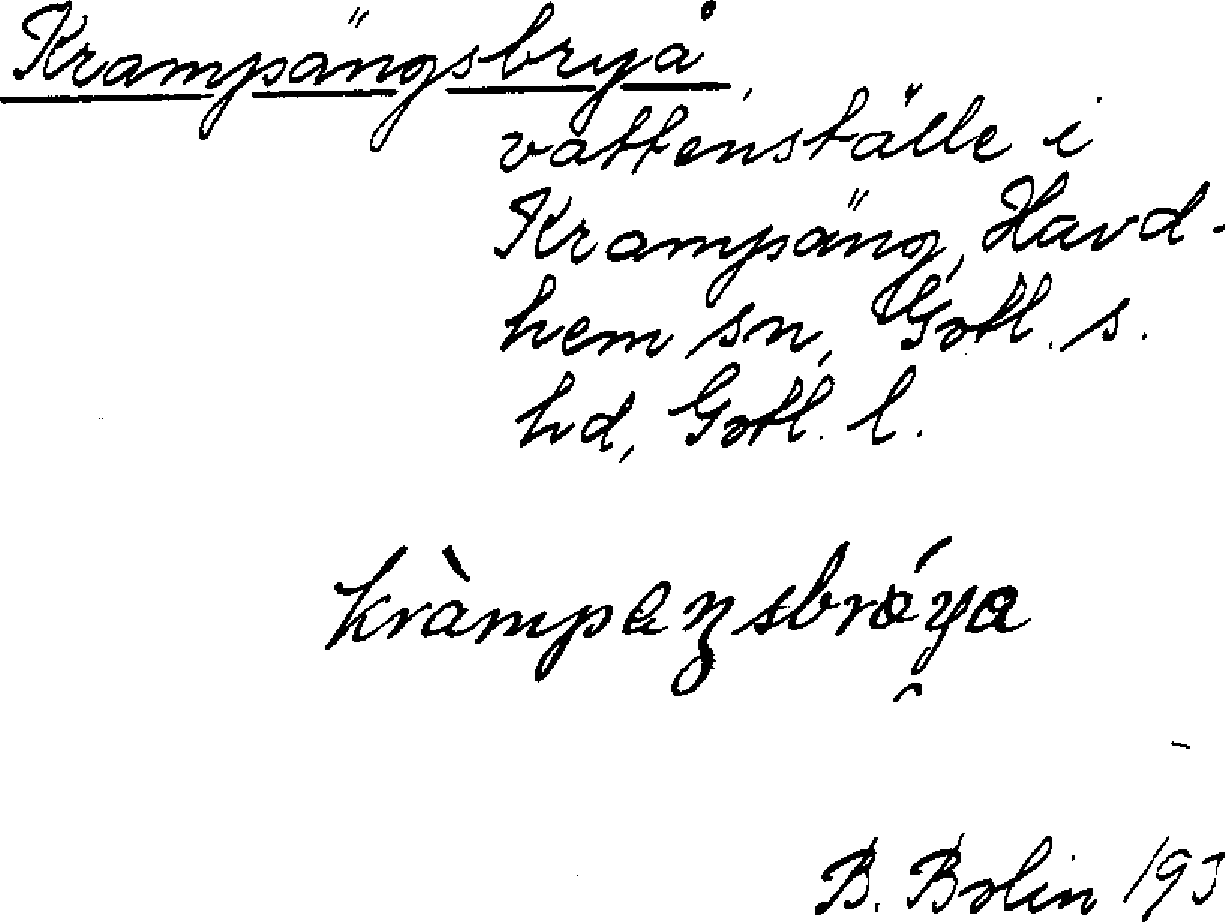 Krampängsbryå
vattenställe i
Krampäng, Havd-
hem sn, Gotl. s.
hd, Gotl. l.
B. Bolin 193